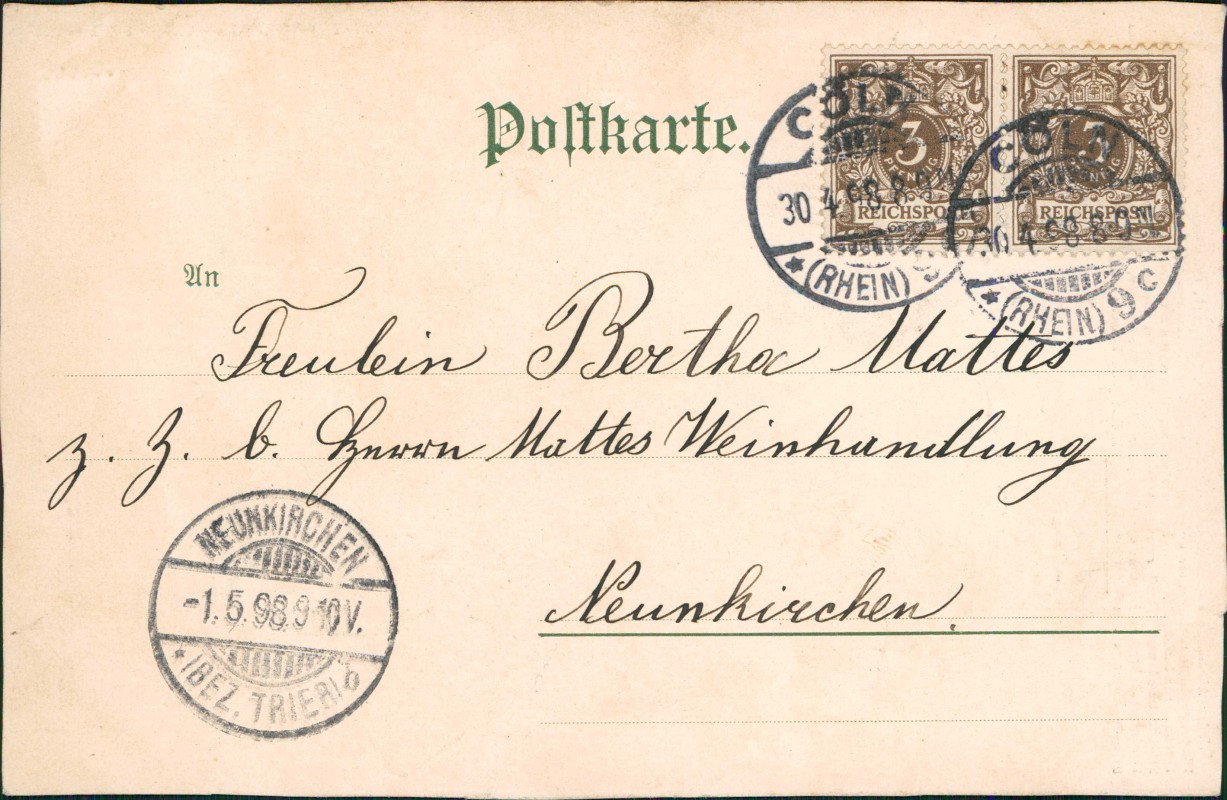 Postkarte.
CÖLN
30.4.98.8-9N
* (RHEIN) 9
3
PFENNIG
REICHSPOST
CÖLN
30.4.98.8-9N
* (RHEIN) 9 c
3
REICHSPOST
An
Freulein Bertha Mattes
z. Z. b. Herrn Mattes Weinhandlung
Neunkirchen.
NEUNKIRCHEN
-1.5.98.9-10V.
* (BEZ. TRIER) b